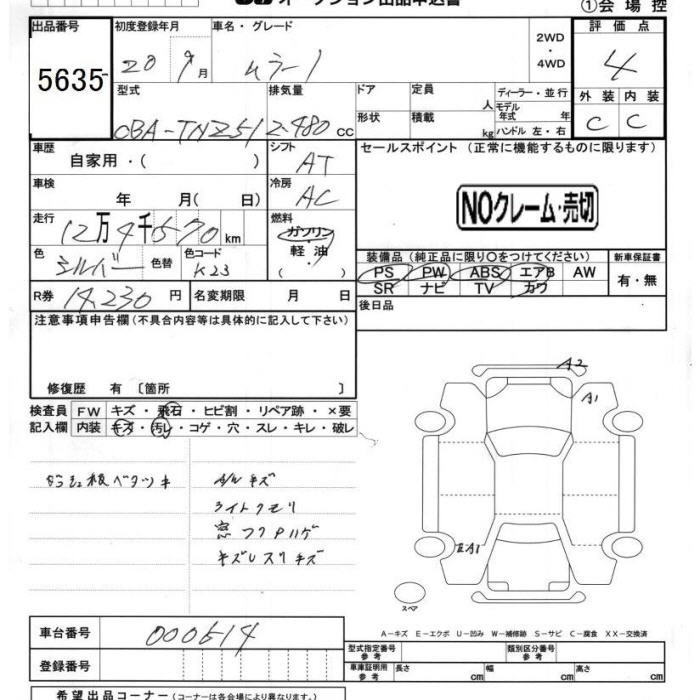 オークション出品申込書
①会場控
出品番号 5635
初度登録年月 20 9月
車名・グレード ムラーノ
2WD・4WD
評価点 4
外装 C 内装 C
型式 CBA-TNZ51
排気量 2480 cc
ドア
形状
定員 人
積載 kg
ディーラー・並行
モデル年式 年
ハンドル 左・右
車歴 自家用・( )
シフト AT
セールスポイント(正常に機能するものに限ります)
NOクレーム・売切
車検 年 月( 日)
冷房 AC
走行 12万4千570 km
燃料 ガソリン・軽・油 ( )
色 シルバー 色替
色コード K23
装備品(純正品に限り○をつけてください)
新車保証書
PS PW ABS エアB AW
SR ナビ TV カワ
有・無
R券 14,230 円
名変期限 月 日
後日品
注意事項申告欄(不具合内容等は具体的に記入して下さい)
修復歴 有〔箇所 〕
検査員記入欄
FW キズ・飛石・ヒビ割・リペア跡・×要
内装 キズ・汚レ・コゲ・穴・スレ・キレ・破レ
ベタツキ
A/W キズ
ライトクモリ
窓フクアハゲ
キズレスリキズ
A2
A1
EA1
スペア
A-キズ E-エクボ U-凹み W-補修跡 S-サビ C-腐食 XX-交換済
車台番号 000614
登録番号
型式指定番号 参考
類別区分番号 参考
車庫証明用 参考
長さ cm 幅 cm 高さ cm
希望出品コーナー(コーナーは各会場により異なります。)